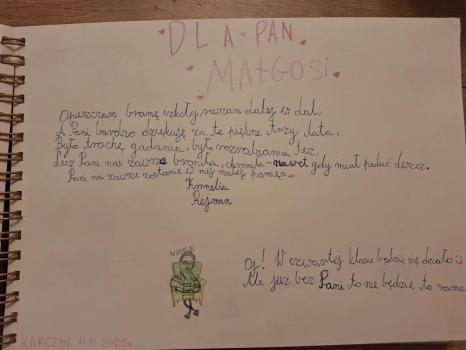 DLA PAN
MAŁGOSI
Opuszczam bramę szkoły, ruszam dalej w dal,
A Pani bardzo dziękuję za te piękne trzy lata,
Było trochę gadania, było rozrabiania też,
Lecz Pani nas zawsze broniła, chroniła - nawet gdy miał padać deszcz.
Pani na zawsze zostanie w mej małej pamięci..
Kornelia
Rejman
Oj! W czwartej klasie będzie się działo
Ale już bez Pani to nie będzie to samo
KARCZYN 11 VI 2025r